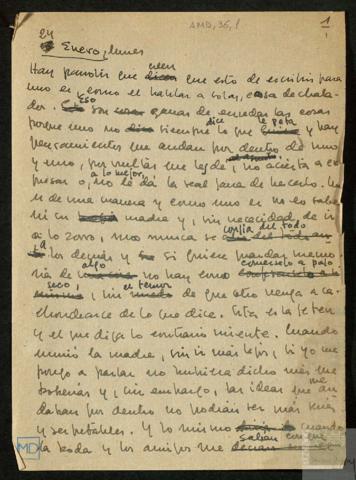 AMD, 36, 1
1
24
Enero, lunes
Hay panolis que creen que esto de escribir para
uno es como el hablar a solas, cosa de chala-
dos. Eso son ganas de enredar las cosas
porque uno no dice siempre lo que le peta y hay
pensamientos que andan por dentro de uno
y uno, por vueltas que le dé, no acierta a ex-
presar o, a lo mejor, no le da la real gana de hacerlo. Uno
es de una manera y como uno es no lo sabe
ni su madre y, sin necesidad de ir
a lo zorro, uno nunca se confía del todo
a los demás y si quiere guardar memo-
ria de algo no hay como comerlo a palo
seco, sin el temor de que otro venga a ca-
chondearse de lo que dice. Esta es la fetén
y el que diga lo contrario miente. Cuando
murió la madre, sin ir más lejos, si yo me
pongo a parlar no hubiera dicho más que
bobadas y, sin embargo, las ideas que me an-
daban por dentro no podían ser más
y respetables. Y lo mismo cuando
la boda y los amigos me salían con que
MD